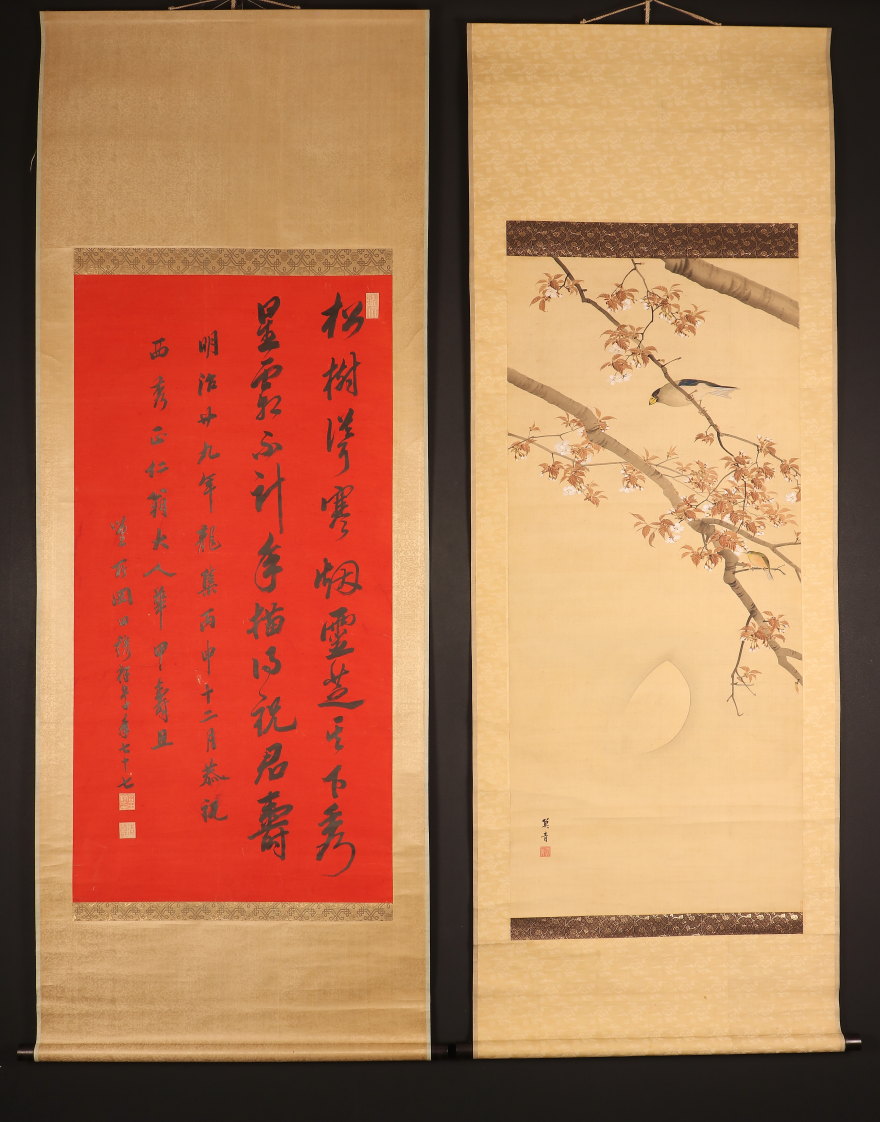 松樹從寒烟靈芝其下秀
星霜不計年描得祝君壽
明治廿九年龍集丙申十二月恭祝
西考正仁翁大人華甲壽旦
年七十七